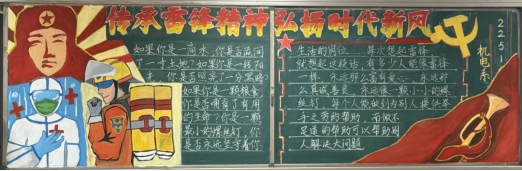 传承雷锋精神 弘扬时代新风
如果你是一滴水,你是否滋润
了一寸土地?如果你是一线阳
光,你是否照亮了一分黑暗?
如果你是一颗粮食
你是否哺育了有用
的生命?你是一颗
最小的螺丝钉,你
是否永远坚守着你
生活的岗位 每次想起雷锋
就想起这段话,有多少人能像雷锋
一样,永远那么富有爱心,永远那
么真诚善良,永远像一颗小小的螺
丝钉,每个人能做到为别人提供举
手之劳的帮助,而微不
足道的帮助可以帮助别
人解决大问题
2251
机电系